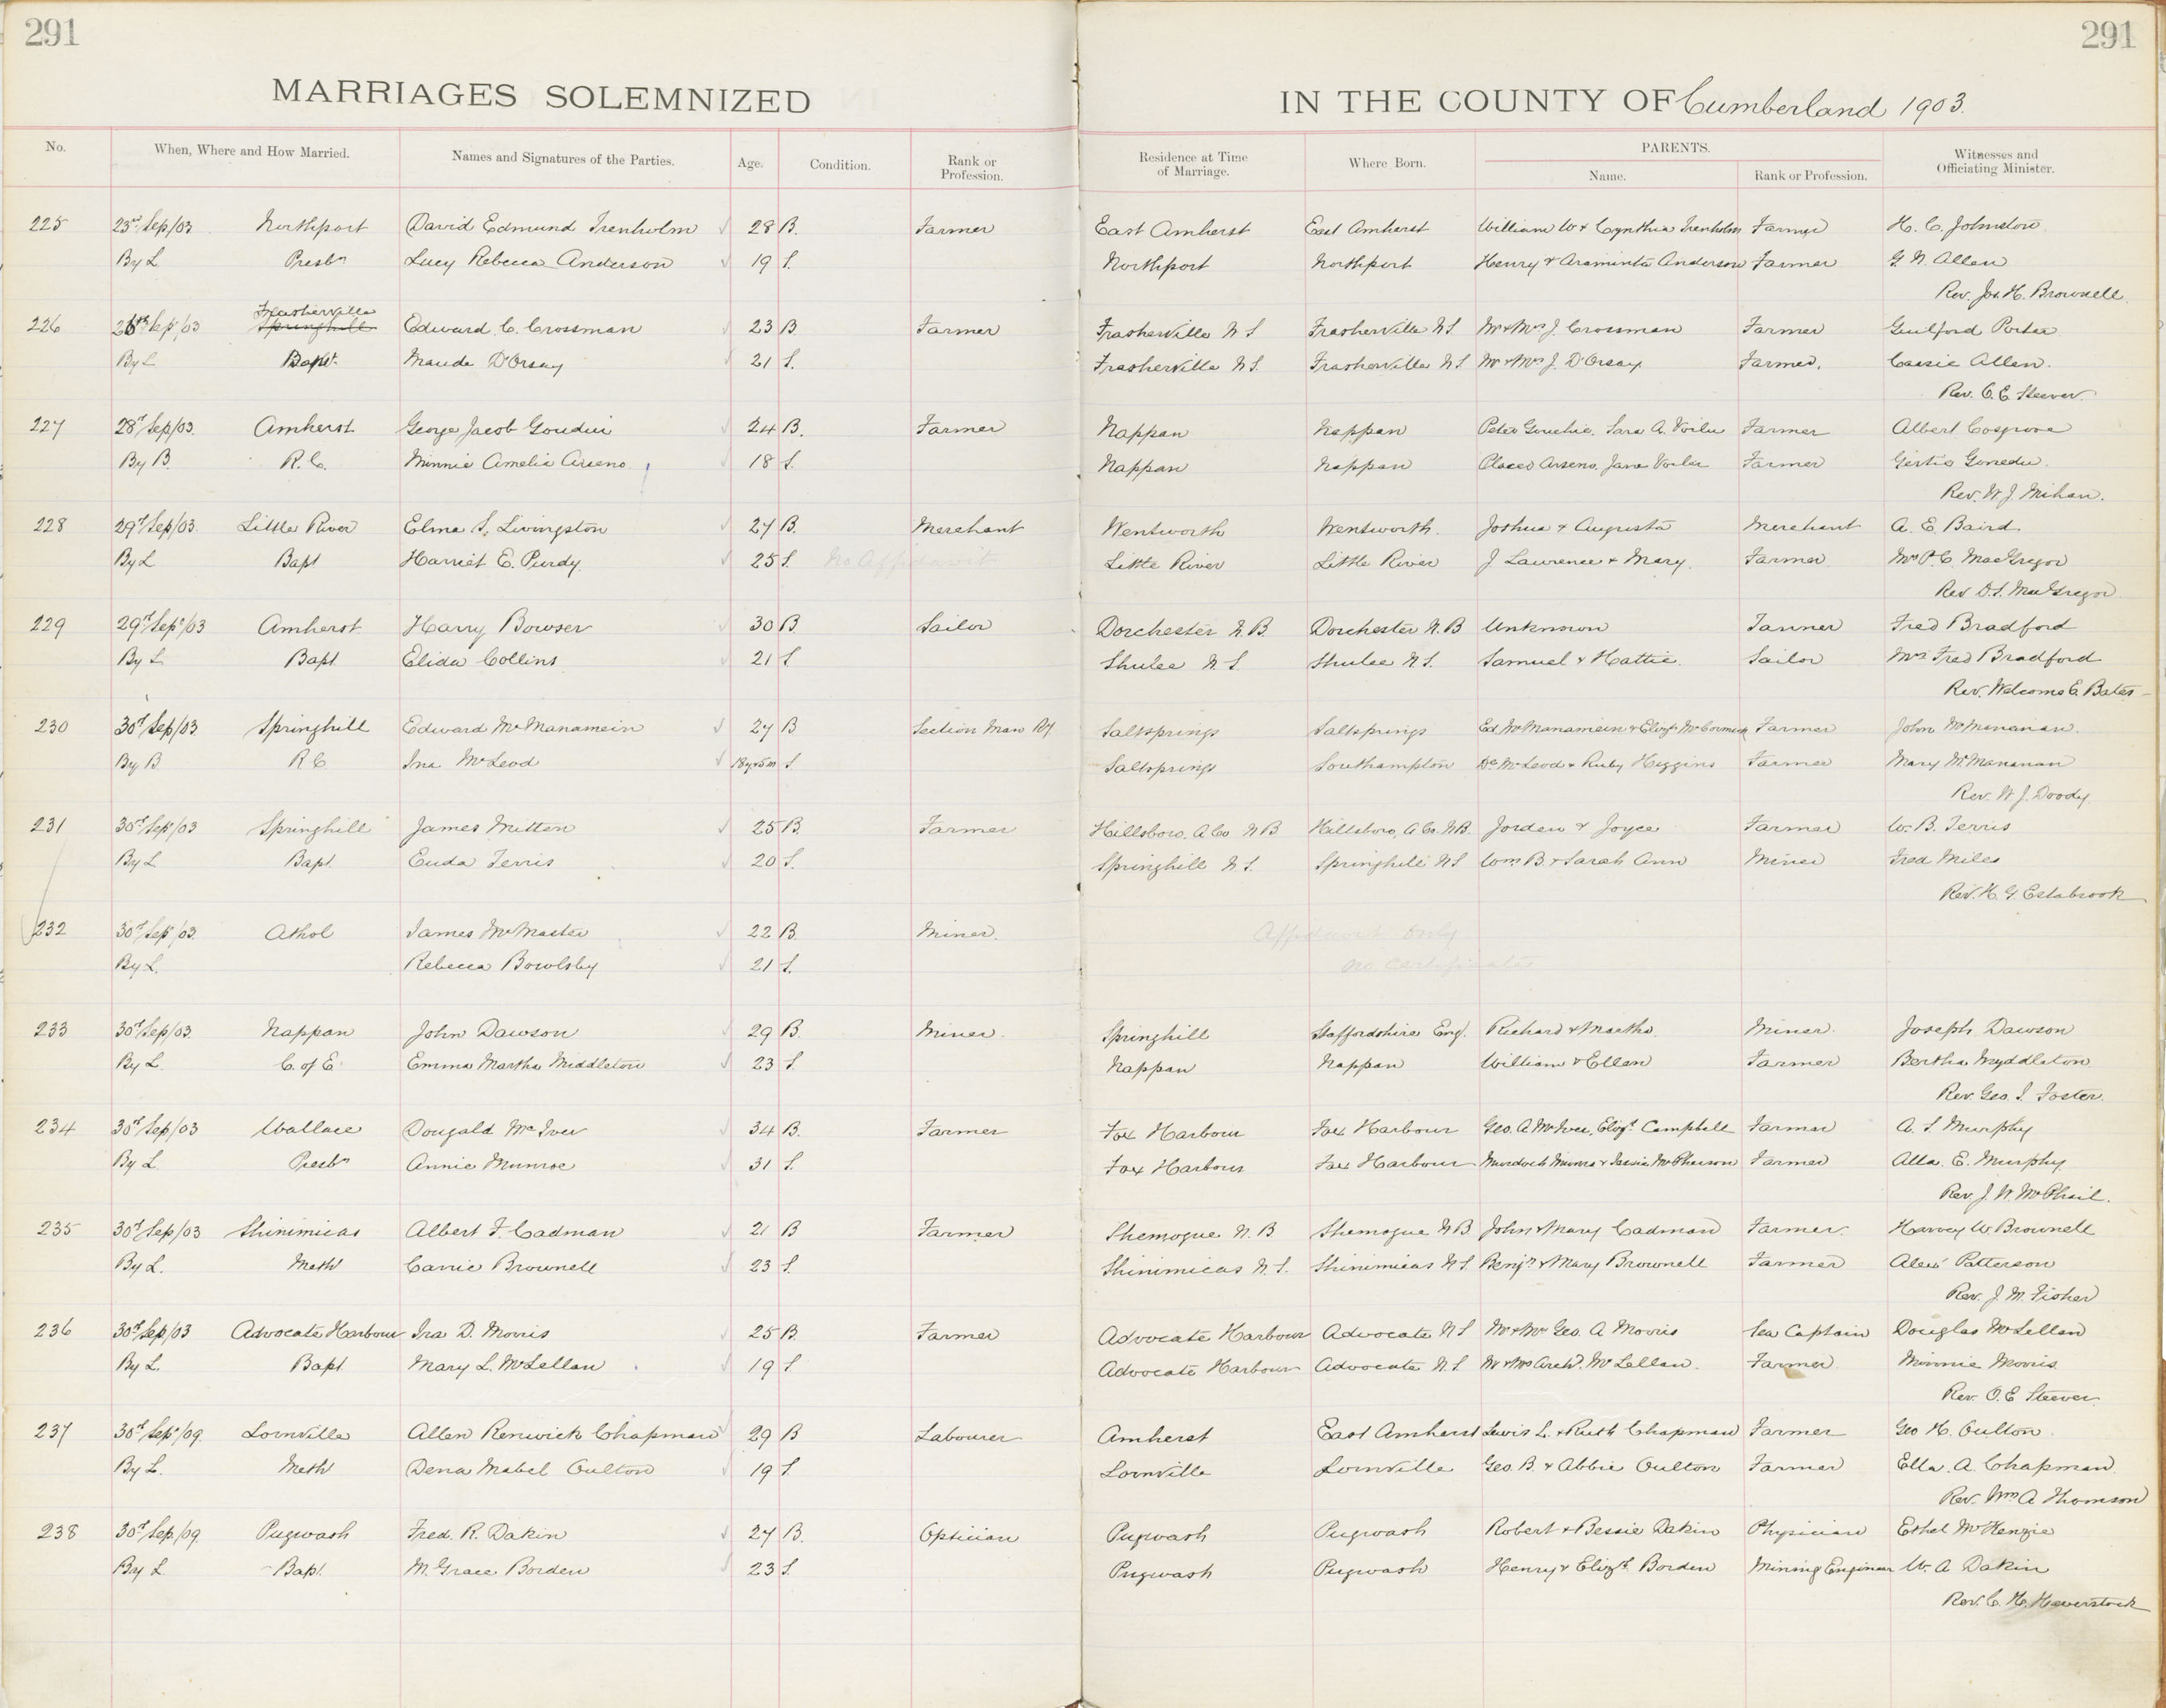 291
291
MARRIAGES SOLEMNIZED IN THE COUNTY OF Cumberland 1903.
No. When, Where and How Married. Names and Signatures of the Parties. Age. Condition. Rank or Profession. Residence at Time of Marriage. Where Born. PARENTS. Name. Rank or Profession. Witnesses and Officiating Minister.
225 23rd Sep/03 Northport David Edmund Trenholm 28 B. Farmer East Amherst East Amherst William W & Cynthia Trenholm Farmer H. C. Johnston
By L. Presbn Lucy Rebecca Anderson 19 S. Northport Northport Henry & Araminta Anderson Farmer G. N. Allen
Rev. Jos. H. Brownell
Frasherville
226 26th Sep/03 Springhill Edward C. Crossman 23 B Farmer Frasherville N S Frasherville N S Mr & Mrs J. Crossman Farmer Guilford Porter
By L Bapt. Maude D'Orsay 21 S. Frasherville N S. Frasherville N S Mr & Mrs J. D'Orsay Farmer. Cassie Allen.
Rev. O. E. Steever.
227 28th Sep/03. Amherst George Jacob 24 B. Farmer Nappan Nappan Peter Sara A. Farmer Albert Cosgrove
By B. R. C. Minnie Amelia Arseno 18 S. Nappan Nappan Arseno, Jane Farmer
Rev. W. J. Mihan.
228 29th Sep/03. Little River Elma S. Livingston 27 B. Merchant Wentworth Wentworth. Joshua & Augusta Merchant A. E. Baird
By L Bapt Harriet E. Purdy. 25 S. No Affidavit Little River Little River J Laurence & Mary. Farmer Mrs P. C. MacGregor
Rev D. S. MacGregor
229 29th Sep/03 Amherst Harry Bowser 30 B. Sailor Dorchester N. B. Dorchester N. B Unknown Farmer Fred Bradford
By L Bapt. Elida Collins 21 S. Shulee N. S. Shulee N S. Samuel & Hattie. Sailor Mrs Fred Bradford
Rev. Welcome E. Bates
230 30th Sep/03 Springhill Edward McManamein 27 B Section Man Ry Saltsprings Saltsprings Ed. McManamein & Elizh McCormick Farmer John McManaman.
By B. R C Ina McLeod 18y & 5m S. Saltsprings Southampton McLeod & Ruby Higgins Farmer Mary McManaman
Rev. W J. Doody.
231 30th Sep/03 Springhill James Mitten 25 B. Farmer Hillsboro. A Co. N B Hillsboro, A Co. N B. Jorden & Joyce Farmer W. B. Terris
By L Bapt. Euda Terris 20 S. Springhill N. S. Springhill N S Wm B. & Sarah Ann Miner Fred Miles
Rev. H. G. Estabrook
232 30th Sep/03. Athol James McMaster 22 B. Miner. Affidavit only
By L. Rebecca Bowlsby 21 S. no certificate
233 30th Sep/03. Nappan John Dawson 29 B. Miner. Springhill Staffordshire Eng. Richard & Martha Miner. Joseph Dawson
By L. C. of E. Emma Martha Middleton 23 S. Nappan Nappan William & Ellen Farmer Bertha Myddleton
Rev. Geo. I. Foster.
234 30th Sep/03 Wallace Dougald McIver 34 B. Farmer Fox Harbour Fox Harbour Geo. A McIver, Elizh Campbell Farmer A. S Murphy
By L. Presbn Annie Munroe 31 S. Fox Harbour Fox Harbour Murdoch Munro & Jessie McPherson Farmer Alla. E. Murphy
Rev. J. W. McPhail.
235 30th Sep/03 Shinimicas Albert F. Cadman 21 B Farmer Shemogue N. B Shemogue N B. John & Mary Cadman Farmer. Harvey W. Brownell
By L. Meth Carrie Brownell 23 S. Shinimicas N. S. Shinimicas N S. Benjn & Mary Brownell Farmer Alex Patterson
Rev. J. M. Fisher
236 30th Sep/03 Advocate Harbour Ira D. Morris 25 B. Farmer Advocate Harbour Advocate N S Mr & Mrs Geo. A Morris Sea Captain Douglas McLellan
By L. Bapt Mary L. McLellan 19 S Advocate Harbour Advocate N. S Mr & Mrs Archd. McLellan. Farmer Minnie Morris
Rev. O. E Steever
237 30th Sep/09. Lornville Allen Renwick Chapman 29 B Labourer Amherst East Amherst Lewis L. & Ruth Chapman Farmer Geo H. Oulton
By L. Meth Dena Mabel Oulton 19 S. Lornville Lornville Geo. B. & Abbie Oulton Farmer Ella. A. Chapman
Rev. Wm A Thomson
238 30th Sep/09. Pugwash Fred. R. Dakin 27 B. Optician Pugwash Pugwash Robert & Bessie Dakin Physician Ethel McKenzie
By L Bapt. M. Grace Borden 23 S. Pugwash Pugwash Henry & Elizth Borden Mining Engineer W. A Dakin
Rev. C. H. Haverstock